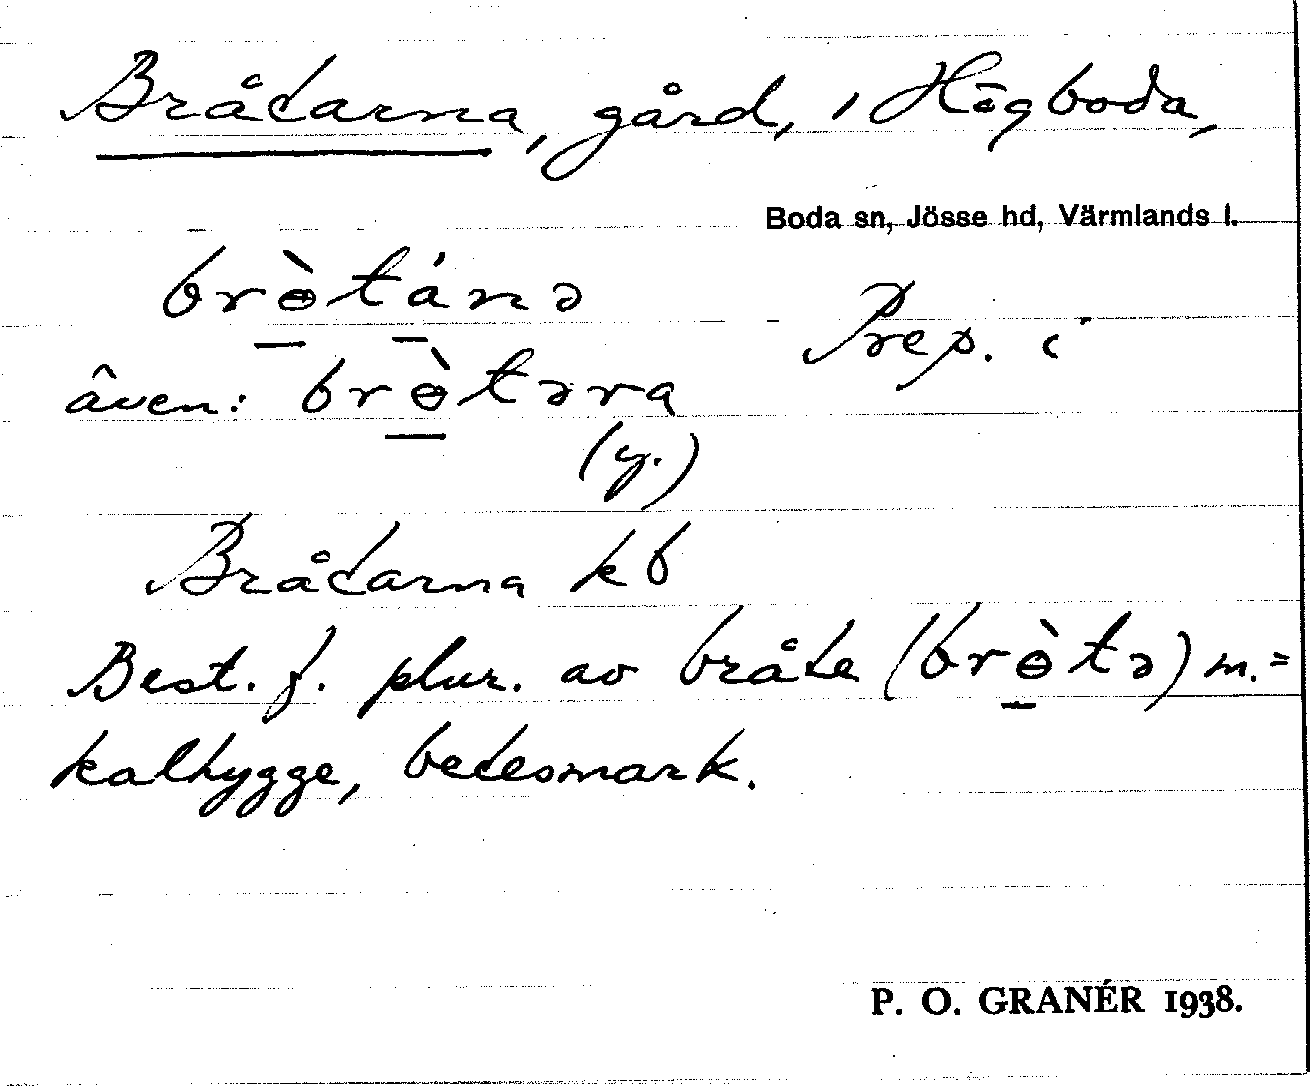 Bråtarna, gård, i Högboda,
Boda sn, Jösse hd, Värmlands l.
brɵ̀tánə
Prep. i
även: brɵ̀təra
(y.)
Bråtarna kb
Best. f. plur. av bråte (brɵ̀tə) m. =
kalhygge, betesmark.
P. O. GRANÉR 1938.